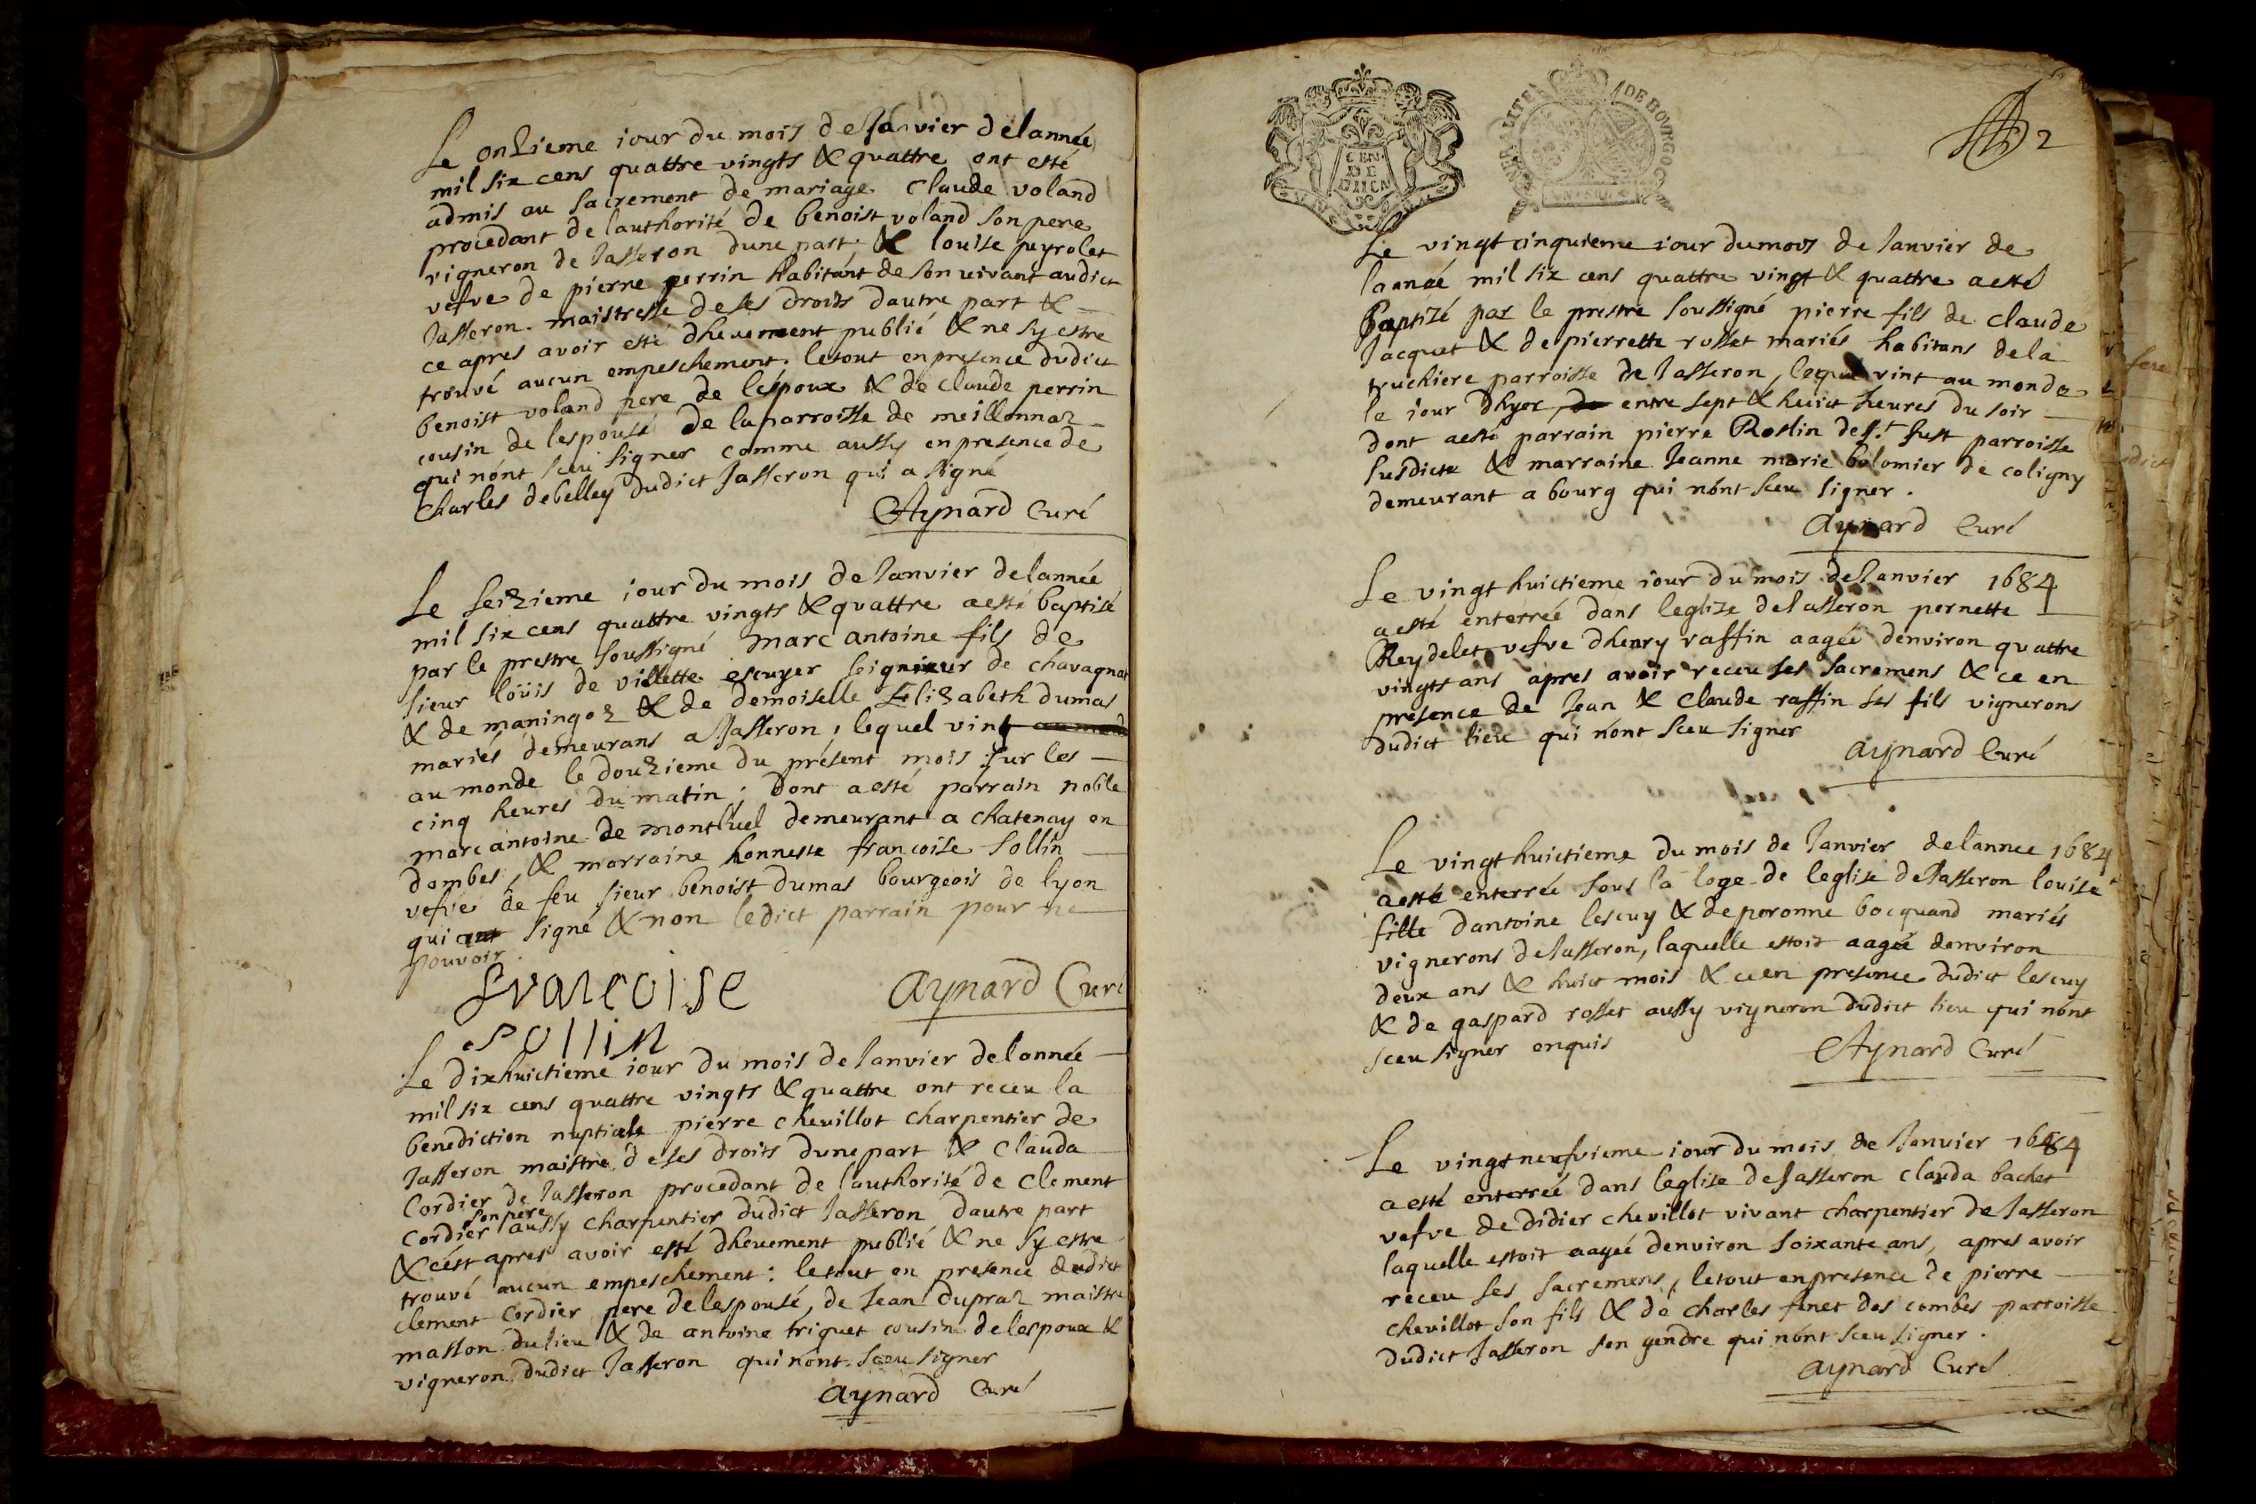 Le onzieme iour du mois de Janvier de lannée
mil six cens quattre vingts & quattre ont esté
admis au sacrement de mariage Claude voland
procedant de lauthorité de benoist voland son pere
vigneron de Jasseron dune part, & louise peyrolet
vefve de pierre perrin habitant de son vivant audict
Jasseron maistresse de ses droits dautre part &
ce apres avoir esté dheuement publié & ne sy estre
trouvé aucun empeschement, le tout en presence dudict
benoist voland pere de lespoux & de claude perrin
cousin de lespouse de la parroisse de meillonnaz
qui n'ont sceu signer comme aussy en presence de
Charles debelley dudict Jasseron qui a signé
Aynard Curé
Le seizieme iour du mois de Janvier de lannée
mil six cens quattre vingts & quattre a esté baptisé
par le prestre soussigné marc antoine fils de
sieur loüis de villette escuyer seigneur de chavagnat
& de maningoz & de demoiselle Elizabeth dumas
mariés demeurans a Jasseron, lequel vint au monde
au monde le douzieme du présent mois sur les
cinq heures du matin; dont a esté parrain noble
marc antoine de montluel demeurant a chatenay en
dombes, & marraine honneste francoise sollin
vefve de feu sieur benoist dumas bourgeois de lyon
qui ont signé & non ledict parrain pour ne
pouvoir.
francoise Aynard Curé
sollin
Le dixhuictieme iour du mois de Janvier de lannée
mil six cens quattre vingts & quattre ont receu la
benediction nuptiale pierre chevillot charpentier de
Jasseron maistre de ses droits dune part & Clauda
Cordier de Jasseron procedant de l'authorité de Clement
son pere
Cordier aussy charpentier dudict Jasseron dautre part
& cést apres avoir esté dheuement publié & ne sy estre
trouvé aucun empeschement: le tout en presence dudict
clement Cordier pere de lespouse, de Jean dupraz maistre
masson du lieu & de antoine triquet cousin de lespoux &
vigneron dudict Jasseron qui n'ont sceu signer
Aynard Curé
2
GEN.
DE
DIION
GENERALITE DE BOVRGOG
Le vingt cinquieme iour du mois de Janvier de
lannée mil six cens quattre vingt & quattre a esté
Baptizé par le prestre soussigné pierre fils de claude
Jacquet & de pierrette rosset mariés habitans de la
truchiere parroisse de Jasseron, lequel vint au monde
le iour dhyer, de entre sept & huict heures du soir
dont a esté parrain pierre Roslin de St Just parroisse
susdicte & marraine Jeanne marie bolomier de coligny
demeurant a bourg qui n'ont sceu signer.
Aynard Curé
Le vingt huictieme iour du mois de Janvier 1684
a esté enterrée dans leglize de Jasseron pernette
Reydelet vefve dhenry raffin aagée denviron quattre
vingts ans apres avoir receu ses sacremens & ce en
présence de Jean & Claude raffin ses fils vignerons
dudict lieu qui n'ont sceu signer
Aynard Curé
Le vingt huictieme du mois de Janvier de lannee 1684
a esté enterrée sous la loge de leglise de Jasseron louise
fille dantoine lescuy & de peronne bocquand mariés
vignerons de Jasseron, laquelle estoit aagée denviron
deux ans & huict mois & ce en presence dudict lescuy
& de gaspard rosset aussy vigneron dudict lieu qui n'ont
sceu signer enquis
Aynard Curé
Le vingt neufvieme iour du mois de Janvier 1684
a esté enterreé dans leglise de Jasseron clauda bachet
vefve de didier chevillot vivant charpentier de Jasseron
laquelle estoit aageé denviron soixante ans, apres avoir
receu ses sacremens, le tout en presence de pierre
chevillot son fils & de charles finet des combes parroisse
dudict Jasseron son gendre qui n'ont sceu signer.
Aynard Curé